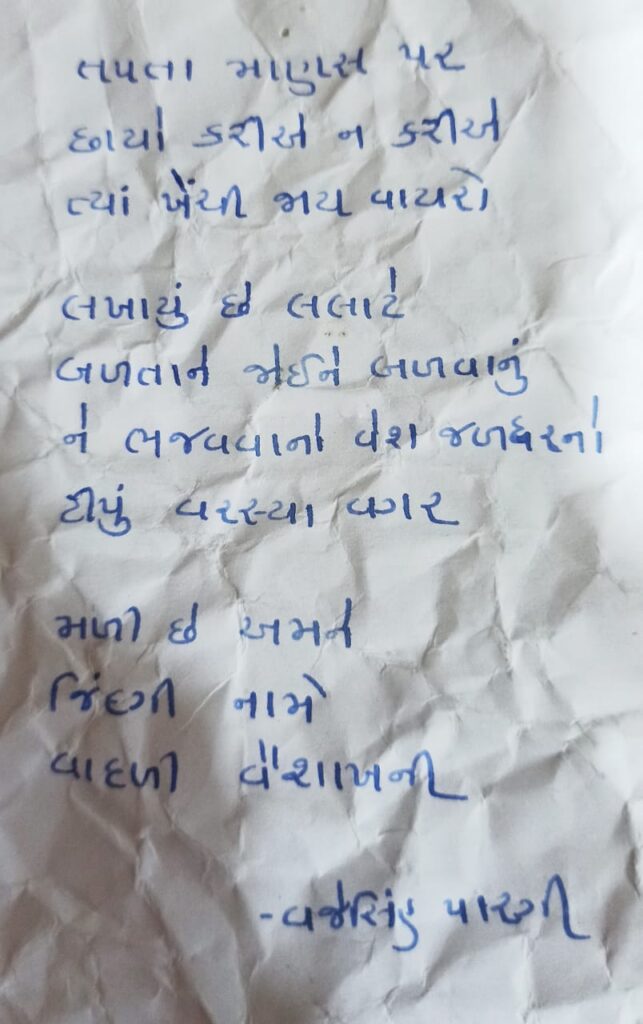 તપતા માણસ પર
છાયો કરીએ ન કરીએ
ત્યાં ખેંચી જાય વાયરો
લખાયું છે લલાટે
બળતાને જોઈને બળવાનું
ને ભજવવાનો વેશ જળધરનો
ટીપું વરસ્યા વગર
મળી છે અમને
જિંદગી નામે
વાદળી વૈશાખની
- વજેસિંહ પારગી